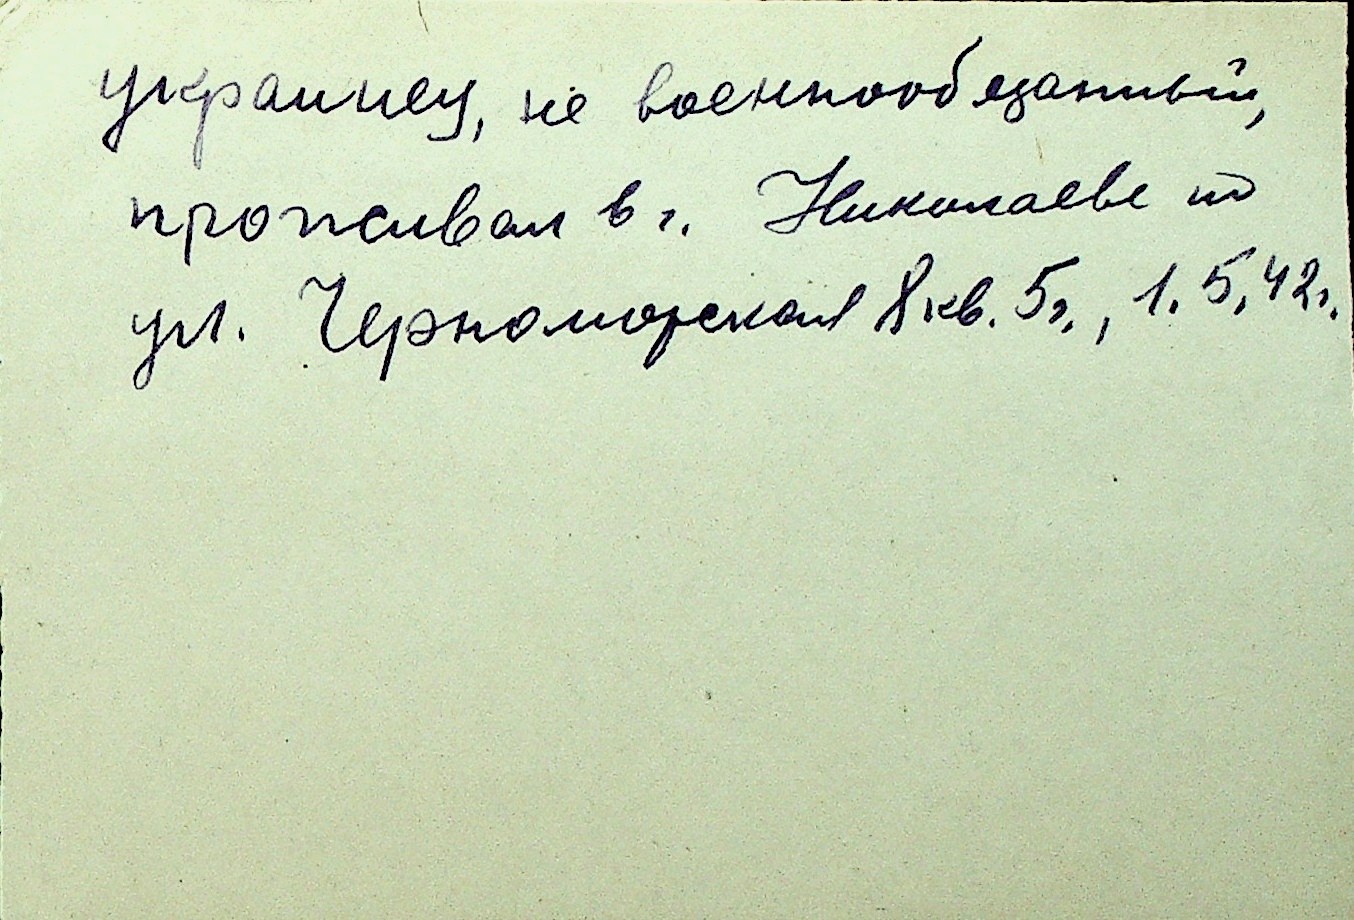 украинец, не военнообязанный,
проживал в г. Николаеве по
ул. Черноморская 8 кв. 5г., 1.5.42г.